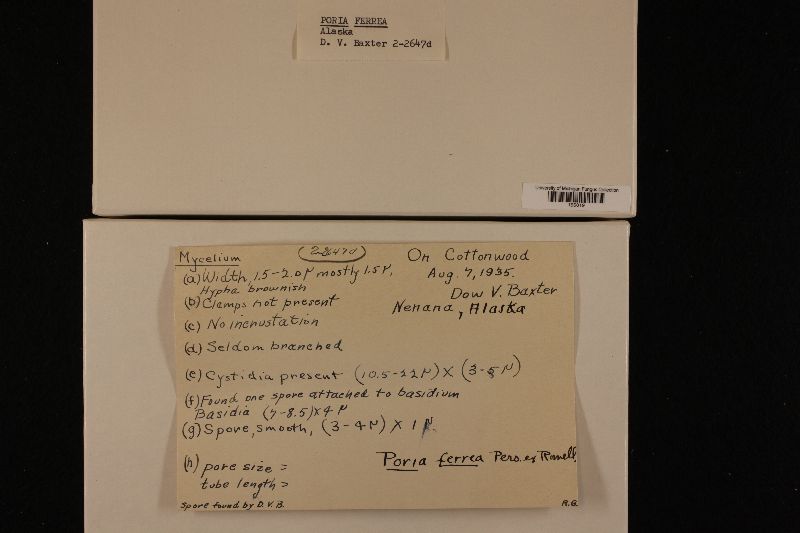 PORIA FERREA
Alaska
D. V. Baxter 2-2647d
University of Michigan Fungus Collection
Mycelium
2-2647d
On Cottonwood
(a) Width, 1.5-2.0μ mostly 1.5μ,
Aug. 7, 1935.
Hypha brownish
Dow V. Baxter
(b) Clamps not present
Nenana, Alaska
(c) No incrustation
(d) Seldom branched
(e) Cystidia present (10.5-22μ) X (3-5μ)
(f) Found one spore attached to basidium
Basidia (7-8.5) X 4μ
(g) Spore, smooth, (3-4μ) X 1μ.
(h) pore size =
Poria ferrea Pers. ex Romell.
tube length =
Spore found by D.V.B.
R.G.